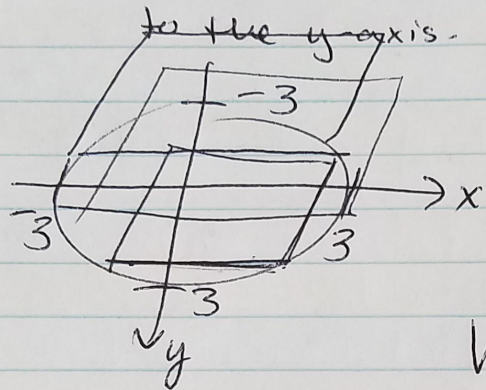 to the y-axis.
-3
x
-3
3
3
y
V